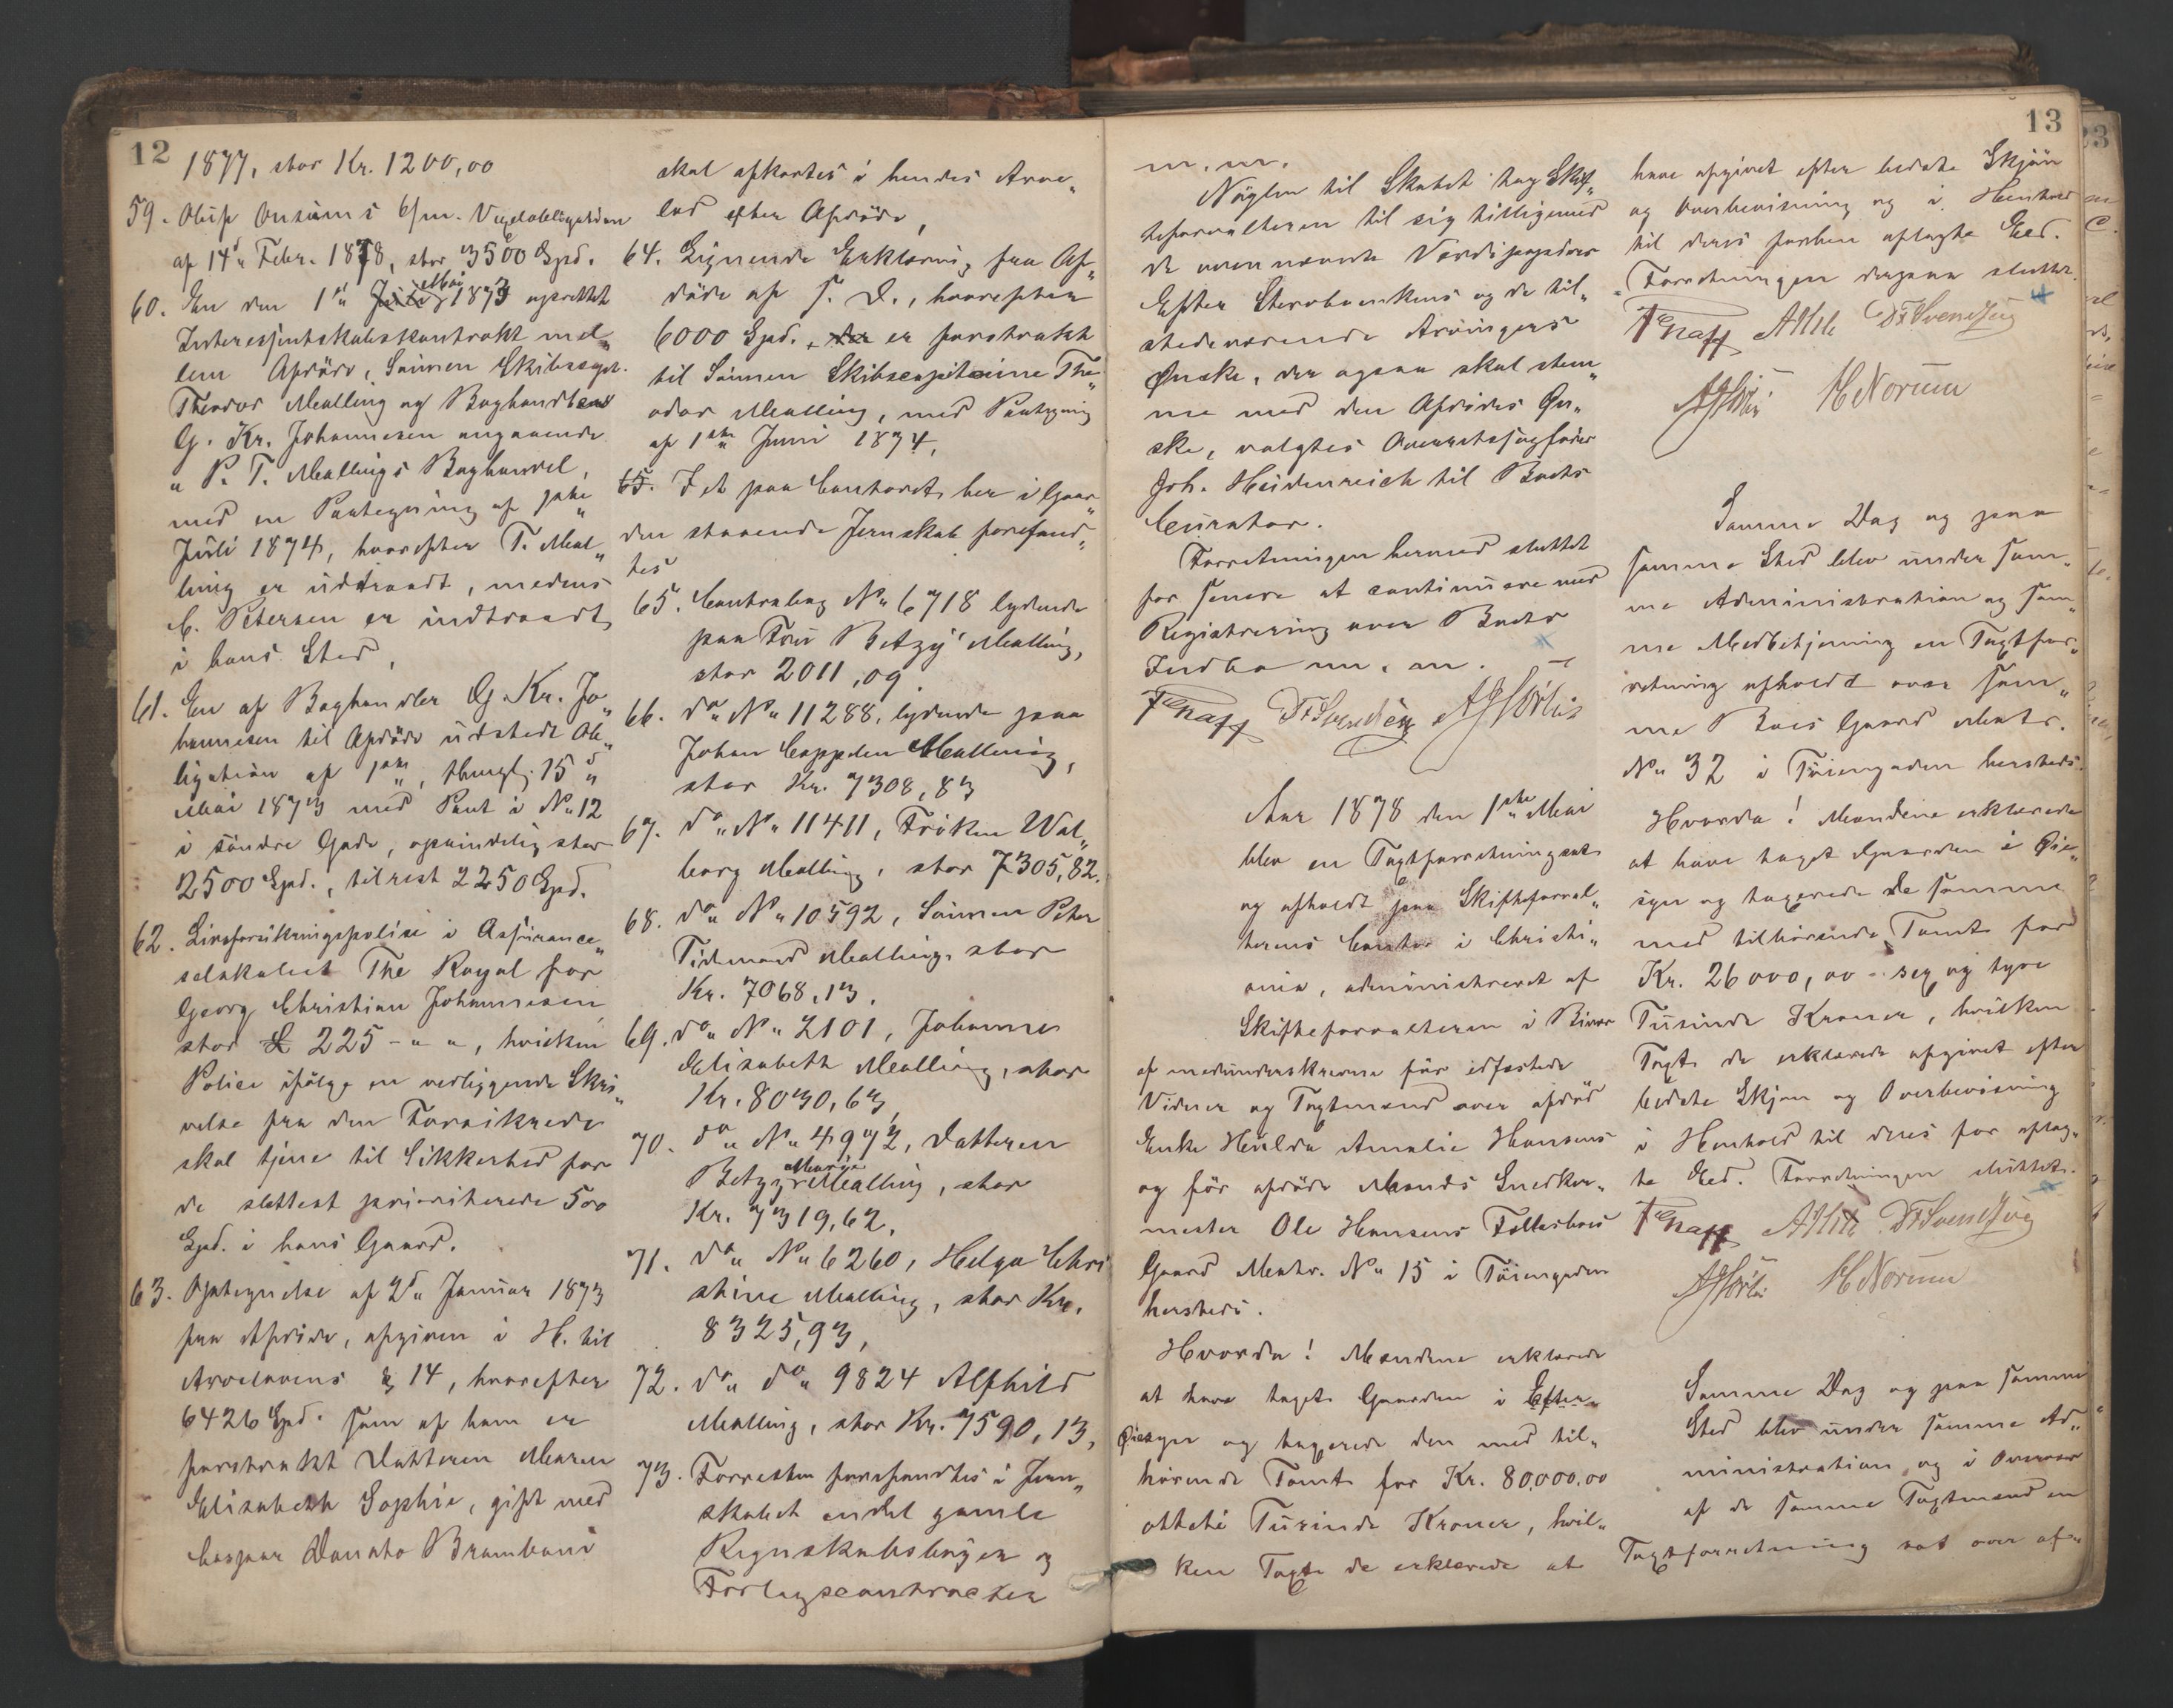 12
1877, stor Kr. 1200,00
59. Oluf Onsums 6/m. Vexelobligation
af 14d. Febr. 1878, stor 3500 Spd.
60. En den 1st Mai 1873 oprettet
Interessentskabskontrakt mel„
lem Afdöde, Sönnen Skibscapt.
Theodor Malling og Boghandler
G. Kr. Johannesen angaaende
„P. T. Mallings Boghandel,
med en Paategning af 1ste
Juli 1874, hvorefter T. Mal„
ling er udtraadt, medens
C. Petersen er indtraadt
i hans Sted,
61. En af Boghandler G. Kr. Jo„
hannesen til Afdöde udstedt Ob„
ligation af 1ste, thingl. 15d
Mai 1873 med Pant i No 12
i söndre Gade, oprindelig stor
2500 Spd., tilrest 2250 Spd.
62. Livsforsikringspolise i Assurance„
selskabet The Royal for
Georg Christian Johannesen,
stor £ 225 - „ „, hvilken
Police ifölge en vedliggende Skri„
velse fra den Forsikrede
skal tjene til Sikkerhed for
de slettest prioriterede 500
Spd. i hans Gaard.
63. Optegnelse af 2d. Januar 1873
fra Afdöde, afgiven i H. til
Arvelovens § 14, hvorefter
6426 Spd. som af ham er
forstrakt Datteren Maren
Elisabeth Sophie, gift med
Caspar Donato Brambani
skal afkortes i hendes Arve„
lod efter Afdöde,
64. Lignende Erklæring fra Af„
döde af s. D., hvorefter
6000 Spd., er forstrakt
til Sönnen Skibscapitaine The„
odor Malling, med Paategning
af 1ste Juni 1874,
65. I et paa Contoret her i Gaar„
den staaende Jernskab forefand„
tes
65. Contrabog No 6718 lydende
paa Fru Betzy Malling,
stor 2011,09
66. do No 11288, lydende paa
Johan Coppelen Malling,
stor Kr. 7308,83
67. do No 11411, Fröken Wal„
borg Malling, stor 7305,82.
68. do No 10592, Sönnen Peter
Tidemand Malling, stor
Kr. 7068,13.
69. do No 2101, Johanne
Elisabeth Malling, stor
Kr. 8030,63,
70. do No 4972, Datteren
Betzy Marie Malling, stor
Kr. 7319,62,
71. do No 6260, Helga Chri
stine Malling, stor Kr.
8325,93,
72. do do 9824 Alfhild
Malling, stor Kr. 7590,13,
73. Forresten forefandtes i Jern„
skabet endel gamle
Regnskabsböger og
Forlagscontracter
13
m. m.
Nöglen til Skabet tog Skif„
teforvalteren til sig tilligemed
de ovennævnte Værdipapirer
Efter Sterboenkens og de til„
stedeværende Arvingers
Önske, der ogsaa skal stem„
me med den Afdödes Ön„
ske, valgtes Overretssagförer
Joh. Heidenreich til Boets
Curator.
Forretningen hermed sluttet
for senere at continuere med
Registrering over Boets
Indbo m. m.
Fr Svendsen
Aar 1878 den 1ste Mai
blev en Taxtforretning sat
og afholdt paa Skifteforval„
terens Contor i Christi„
ania, administreret af
Skifteforvalteren i Bivær
af medunderskrevne för edfæstede
Vidner og Taxtmænd over afdöd
Enke Hulda Amalie Hansens
og för afdöde Mands Snedker„
mester Ole Hansens Fællesboes
Gaard Matr. No 15 i Töiengaden
hersteds.
Hvorda! Mændene erklærede
at have taget Gaarden i
Öiesyn og taxerede den med til„
hörende Tomt for Kr. 80,000.00
otteti Tusinde Kroner, hvil„
ken Taxt de erklærede at
have afgivet efter bedste Skjön
og Overbevisning og i Henhold
til deres forhen aflagte Eed.
Forretningen dermed sluttet.
Fr Svendsen
H Norum
Samme Dag og paa
samme Sted blev under sam„
me Administration og sam„
me Medbetjening en Taxtfor„
retning afholdt over sam„
me Boes Gaard Matr.
No 32 i Töiengaden hersteds.
Hvorda! Mændene erklærede
at have taget Gaarden i Öie„
syn og taxerede de samme
med tilhörende Tomt for
Kr. 26000,00 - sex og tyve
Tusinde Kroner, hvilken
Taxt de erklærede afgivet efter
bedste Skjön og Overbevisning
i Henhold til deres för aflag„
te Eed. Forretningen sluttet.
Fr Svendsen
H Norum
Samme Dag og paa samme
Sted blev under samme Ad„
ministration og i Overvær
af de samme Taxtmænd en
Taxtforretning sat over af„
23